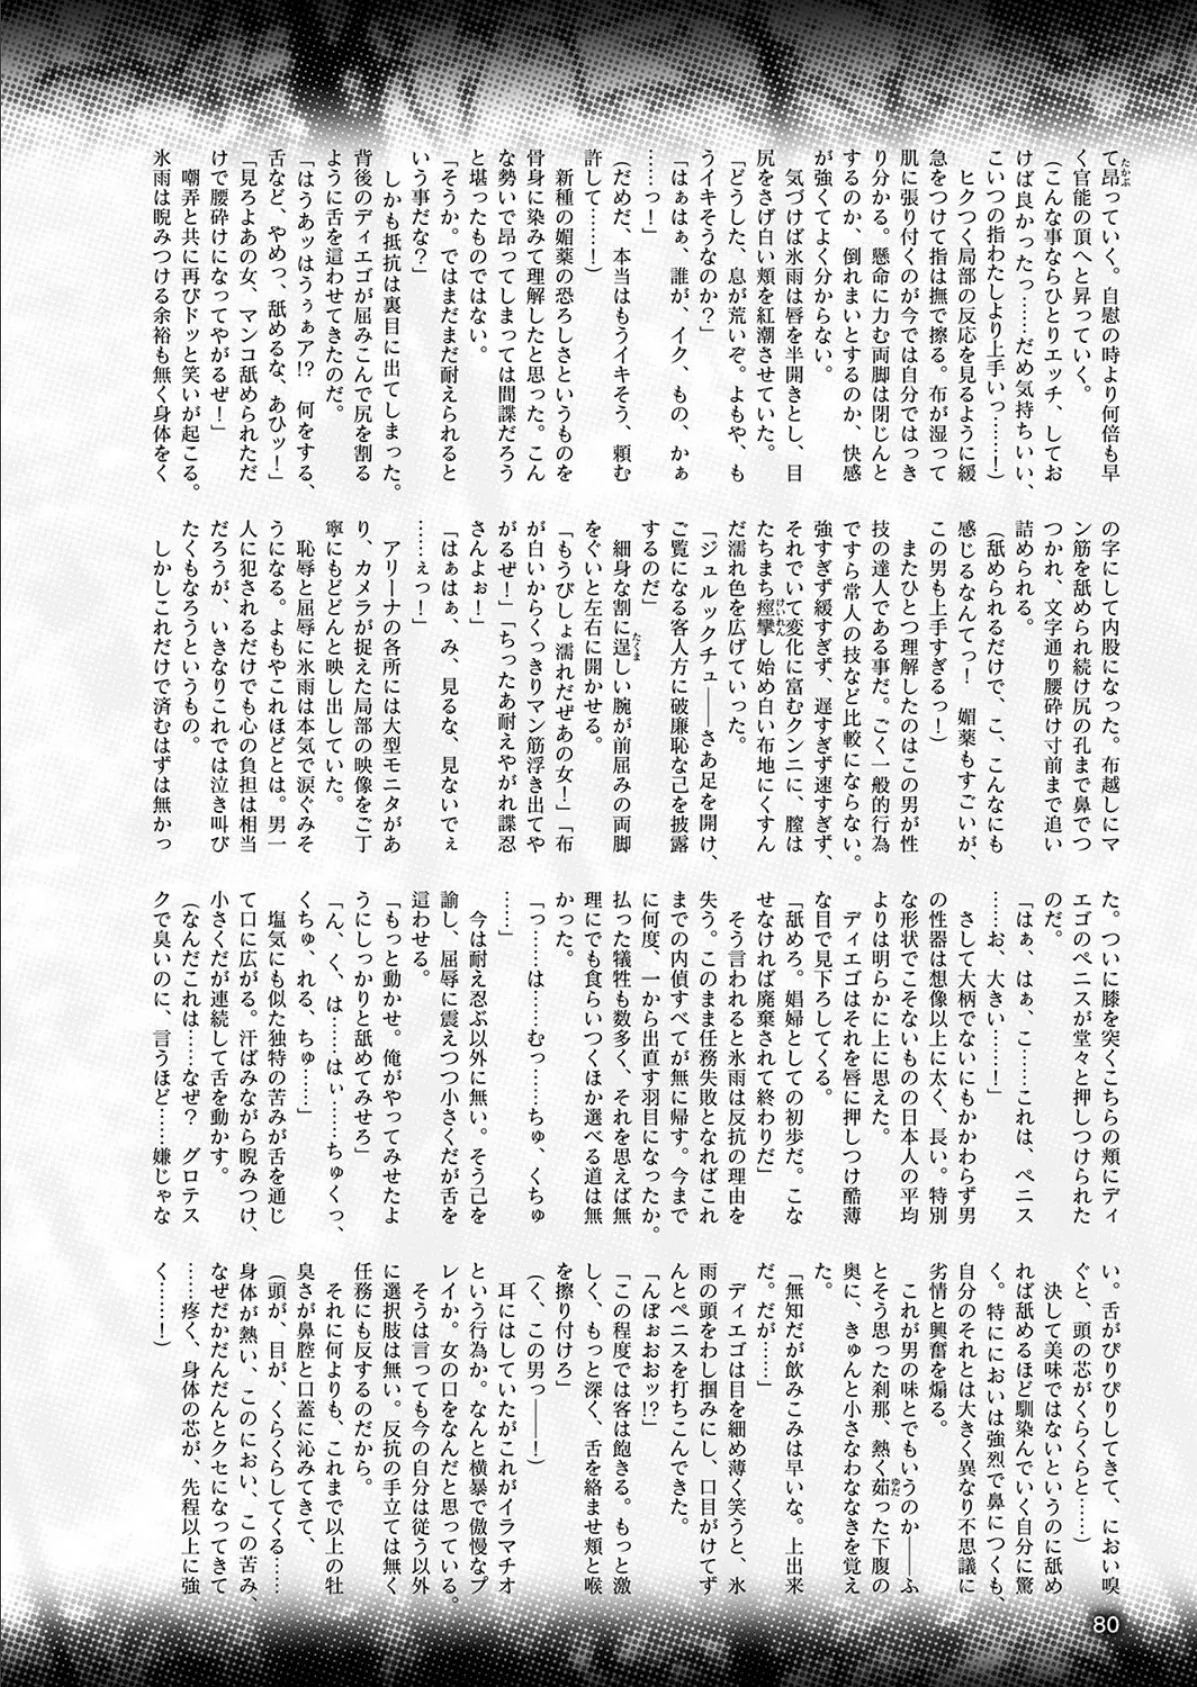 て昂っていく。自慰の時より何倍も早
く官能の頂へと昇っていく。
（こんな事ならひとりエッチ、してお
けば良かったっ……だめ気持ちいい、
こいつの指わたしより上手いっ……！）
ヒクつく局部の反応を見るように緩
急をつけて指は撫で擦る。布が湿って
肌に張り付くのが今では自分ではっき
り分かる。懸命に力む両脚は閉じんと
するのか、倒れまいとするのか、快感
が強くてよく分からない。
気づけば氷雨は唇を半開きとし、目
尻をさげ白い頬を紅潮させていた。
「どうした、息が荒いぞ。よもや、も
うイキそうなのか？」
「はぁはぁ、誰が、イク、もの、かぁ
……っ！」
（だめだ、本当はもうイキそう、頼む
許して……！）
新種の媚薬の恐ろしさというものを
骨身に染みて理解したと思った。こん
な勢いで昂ってしまっては間諜だろう
と堪ったものではない。
「そうか。ではまだまだ耐えられると
いう事だな？」
しかも抵抗は裏目に出てしまった。
背後のディエゴが屈みこんで尻を割る
ように舌を這わせてきたのだ。
「はうあッはうぅぁア!?　何をする、
舌など、やめっ、舐めるな、あひッ！」
「見ろよあの女、マンコ舐められただ
けで腰砕けになってやがるぜ！」
嘲弄と共に再びドッと笑いが起こる。
氷雨は睨みつける余裕も無く身体をく
の字にして内股になった。布越しにマ
ン筋を舐められ続け尻の孔まで鼻でつ
つかれ、文字通り腰砕け寸前まで追い
詰められる。
（舐められるだけで、こ、こんなにも
感じるなんてっ！　媚薬もすごいが、
この男も上手すぎるっ！）
またひとつ理解したのはこの男が性
技の達人である事だ。ごく一般的行為
ですら常人の技など比較にならない。
強すぎず緩すぎず、遅すぎず速すぎず、
それでいて変化に富むクンニに、膣は
たちまち痙攣し始め白い布地にくすん
だ濡れ色を広げていった。
「ジュルックチュ――さあ足を開け、
ご覧になる客人方に破廉恥な己を披露
するのだ」
細身な割に逞しい腕が前屈みの両脚
をぐいと左右に開かせる。
「もうびしょ濡れだぜあの女！」「布
が白いからくっきりマン筋浮き出てや
がるぜ！」「ちったあ耐えやがれ諜忍
さんよぉ！」
「はぁはぁ、み、見るな、見ないでぇ
……ぇっ！」
アリーナの各所には大型モニタがあ
り、カメラが捉えた局部の映像をご丁
寧にもどどんと映し出していた。
恥辱と屈辱に氷雨は本気で涙ぐみそ
うになる。よもやこれほどとは。男一
人に犯されるだけでも心の負担は相当
だろうが、いきなりこれでは泣き叫び
たくもなろうというもの。
しかしこれだけで済むはずは無かっ
た。ついに膝を突くこちらの頬にディ
エゴのペニスが堂々と押しつけられた
のだ。
「はぁ、はぁ、こ……これは、ペニス
……お、大きい……！」
さして大柄でないにもかかわらず男
の性器は想像以上に太く、長い。特別
な形状でこそないものの日本人の平均
よりは明らかに上に思えた。
ディエゴはそれを唇に押しつけ酷薄
な目で見下ろしてくる。
「舐めろ。娼婦としての初歩だ。こな
せなければ廃棄されて終わりだ」
そう言われると氷雨は反抗の理由を
失う。このまま任務失敗となればこれ
までの内偵すべてが無に帰す。今まで
に何度、一から出直す羽目になったか。
払った犠牲も数多く、それを思えば無
理にでも食らいつくほか選べる道は無
かった。
「っ……は……むっ……ちゅ、くちゅ
……」
今は耐え忍ぶ以外に無い。そう己を
諭し、屈辱に震えつつ小さくだが舌を
這わせる。
「もっと動かせ。俺がやってみせたよ
うにしっかりと舐めてみせろ」
「ん、く、は……はぃ……ちゅくっ、
くちゅ、れる、ちゅ……」
塩気にも似た独特の苦みが舌を通じ
て口に広がる。汗ばみながら睨みつけ、
小さくだが連続して舌を動かす。
（なんだこれは……なぜ？　グロテス
クで臭いのに、言うほど……嫌じゃな
い。舌がぴりぴりしてきて、におい嗅
ぐと、頭の芯がくらくらと……）
決して美味ではないというのに舐め
れば舐めるほど馴染んでいく自分に驚
く。特ににおいは強烈で鼻につくも、
自分のそれとは大きく異なり不思議に
劣情と興奮を煽る。
これが男の味とでもいうのか――ふ
とそう思った刹那、熱く茹った下腹の
奥に、きゅんと小さなわななきを覚え
た。
「無知だが飲みこみは早いな。上出来
だ。だが……」
ディエゴは目を細め薄く笑うと、氷
雨の頭をわし掴みにし、口目がけてず
んとペニスを打ちこんできた。
「んぼぉおおッ!?」
「この程度では客は飽きる。もっと激
しく、もっと深く、舌を絡ませ頬と喉
を擦り付けろ」
（く、この男っ――！）
耳にはしていたがこれがイラマチオ
という行為か。なんと横暴で傲慢なプ
レイか。女の口をなんだと思っている。
そうは言っても今の自分は従う以外
に選択肢は無い。反抗の手立ては無く
任務にも反するのだから。
それに何よりも、これまで以上の牡
臭さが鼻腔と口蓋に沁みてきて、
（頭が、目が、くらくらしてくる……
身体が熱い、このにおい、この苦み、
なぜだかだんだんとクセになってきて
……疼く、身体の芯が、先程以上に強
く……！）
80
たかぶ
けいれん
たくま
ゆだ